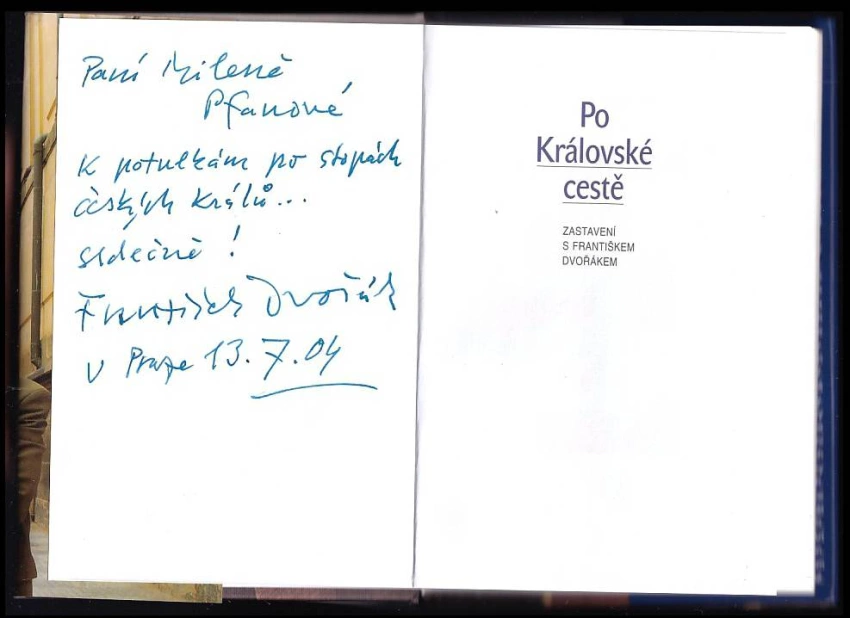 Paní Mileně
Pfanové
K potulkám po stopách
českých králů...
srdečně!
František Dvořák
V Praze 13.7.04
Po
Královské
cestě
ZASTAVENÍ
S FRANTIŠKEM
DVOŘÁKEM